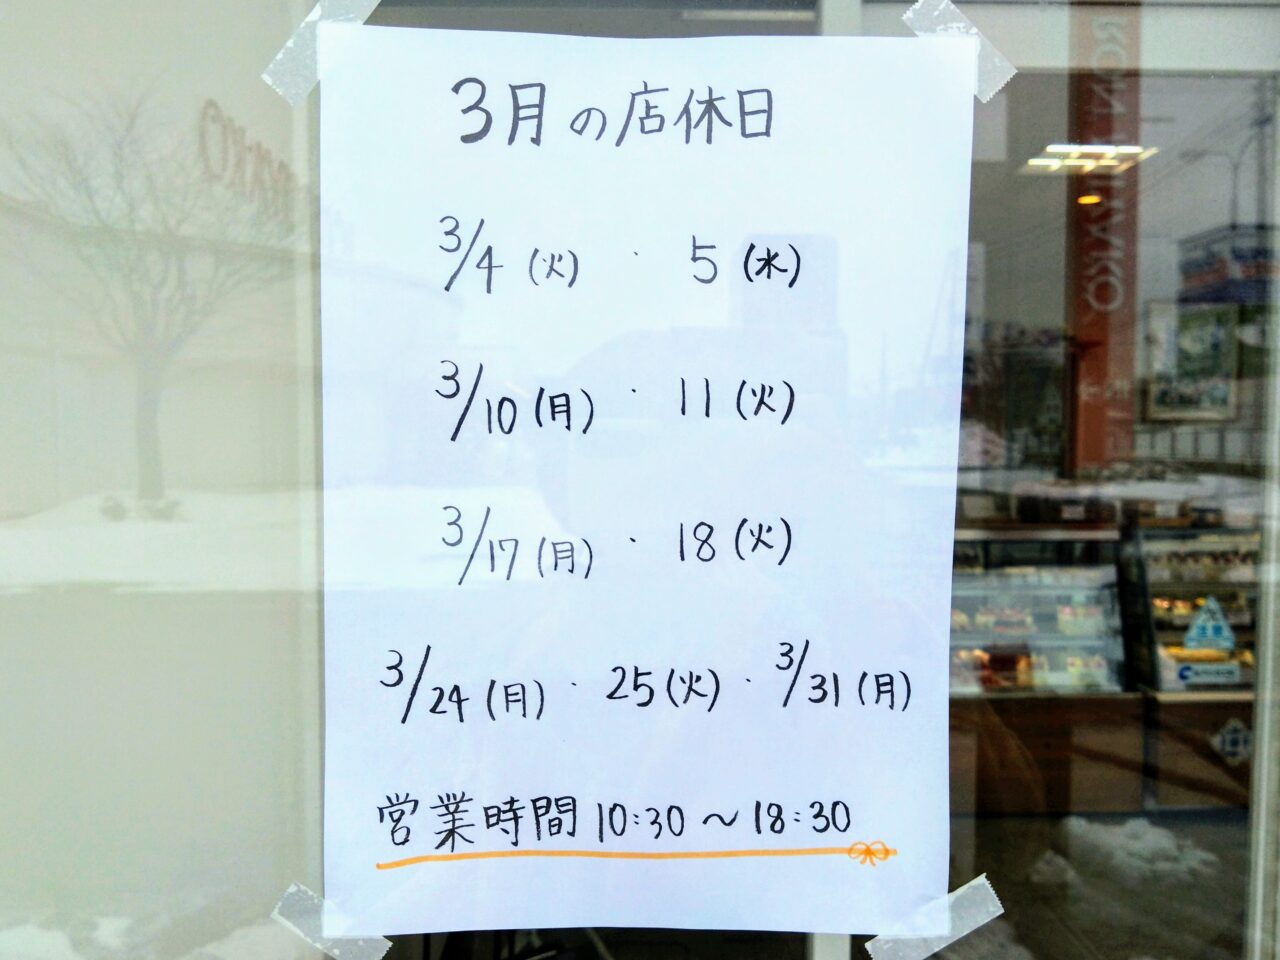 3月の店休日
3/4(火)・5(水)
3/10(月)・11(火)
3/17(月)・18(火)
3/24(月)・25(火)・3/31(月)
営業時間 10:30〜18:30